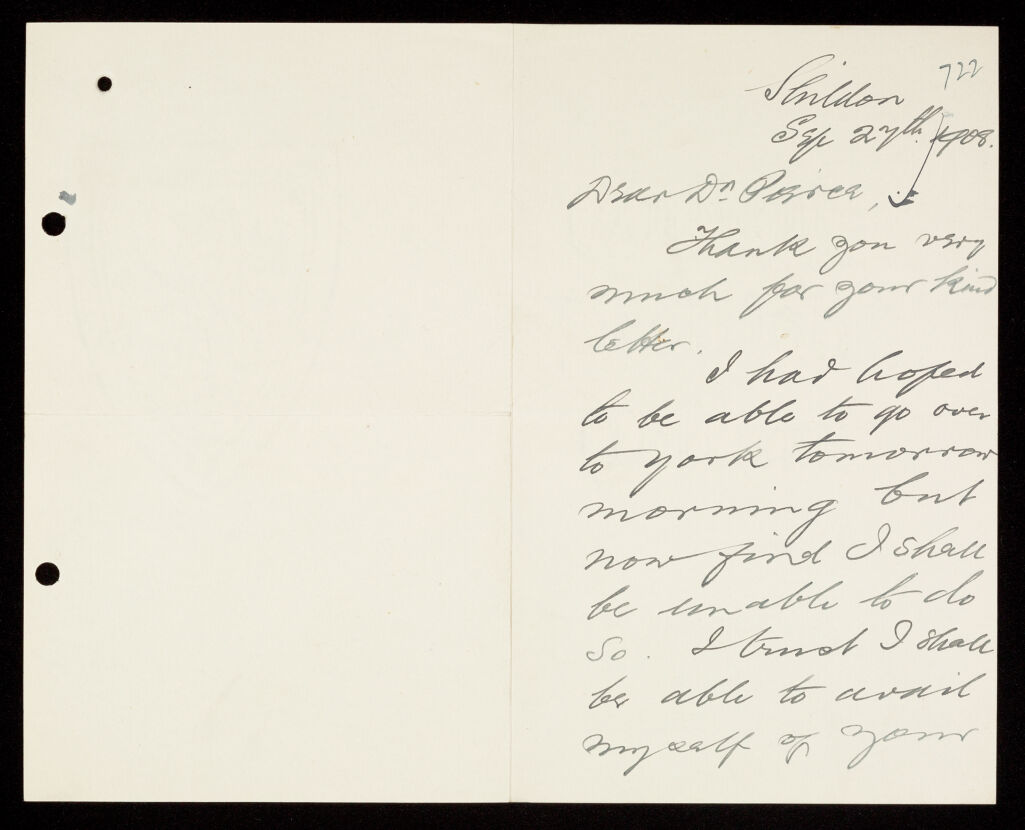 722
Shildon
Sep 27th. 1908.
Dear Dr. Peirce,
Thank you very
much for your kind
letter.
I had hoped
to be able to go over
to York tomorrow
morning but
now find I shall
be unable to do
so. I trust I shall
be able to avail
myself of your